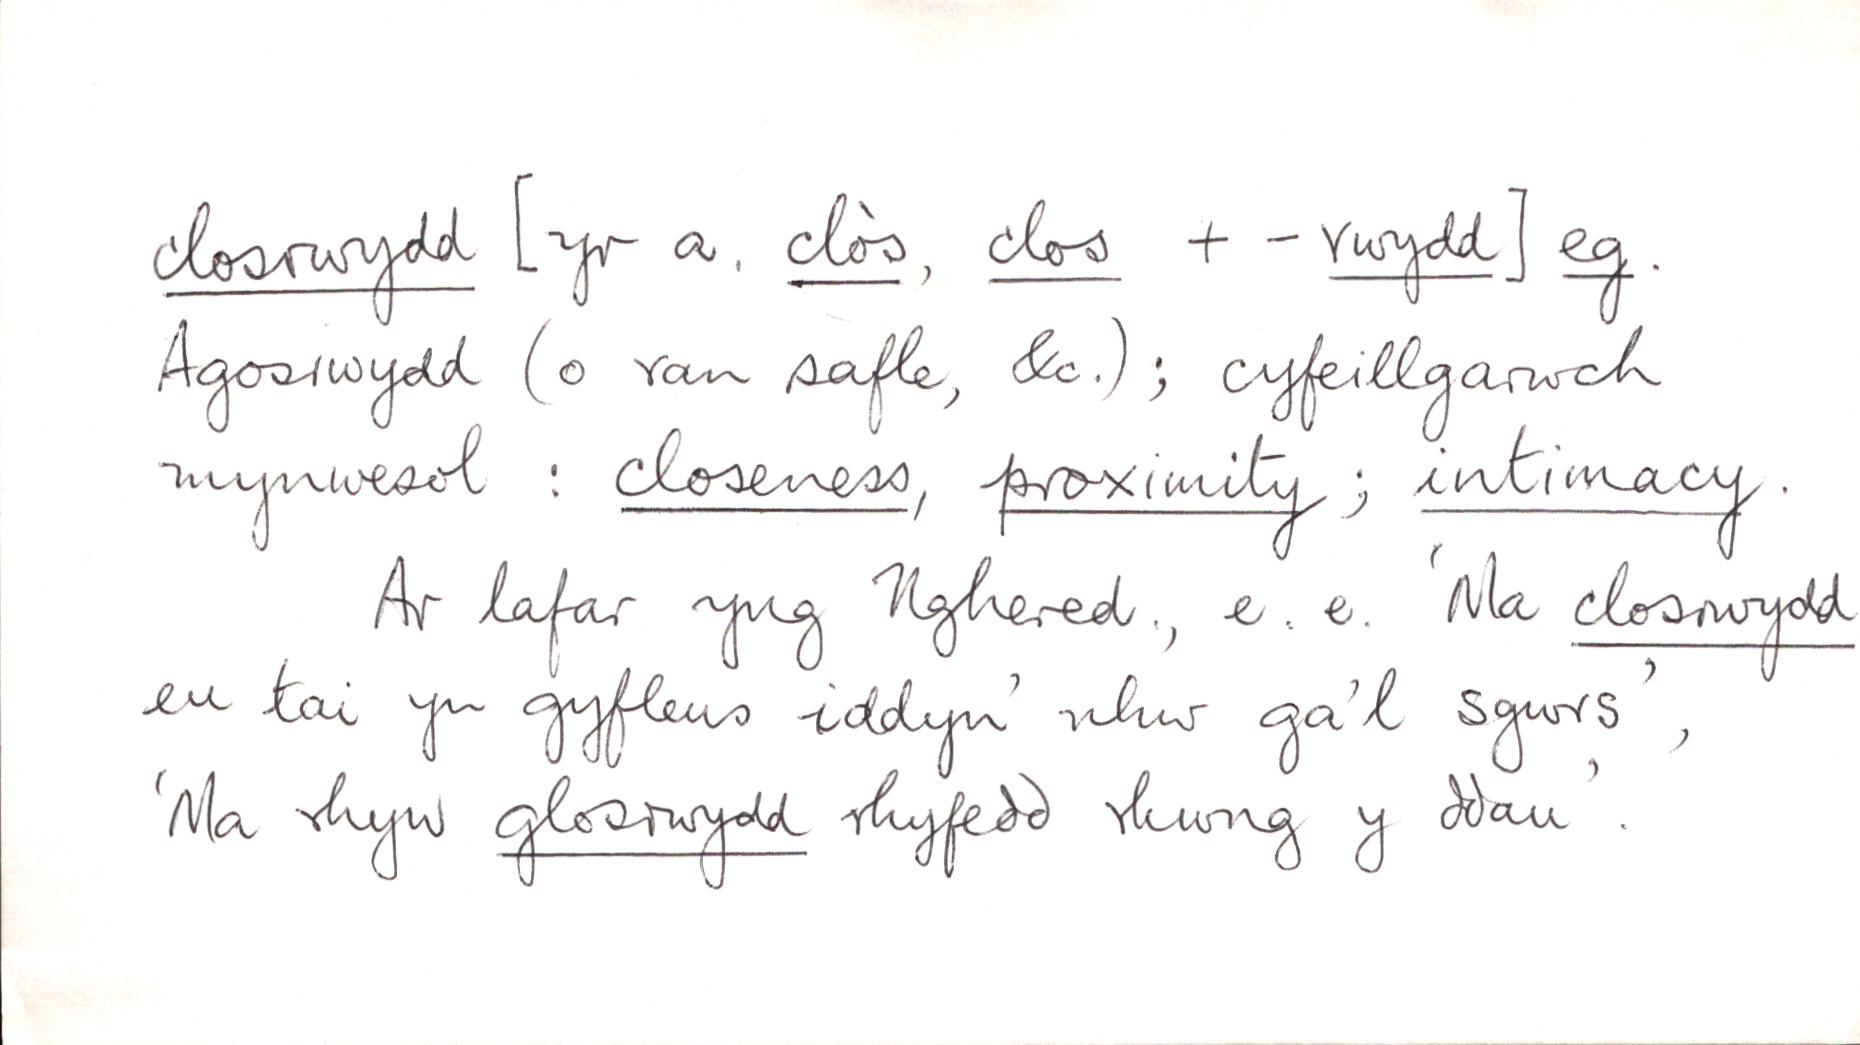 closrwydd [yr a. clòs, clos + -rwydd] eg.
Agosrwydd (o ran safle, &c.); cyfeillgarwch
mynwesol : closeness, proximity; intimacy.
Ar lafar yng Nghered., e.e. 'Ma closrwydd
eu tai yn gyfleus iddyn' nhw ga'l sgwrs',
'Ma rhyw glosrwydd rhyfedd rhwng y ddau'.